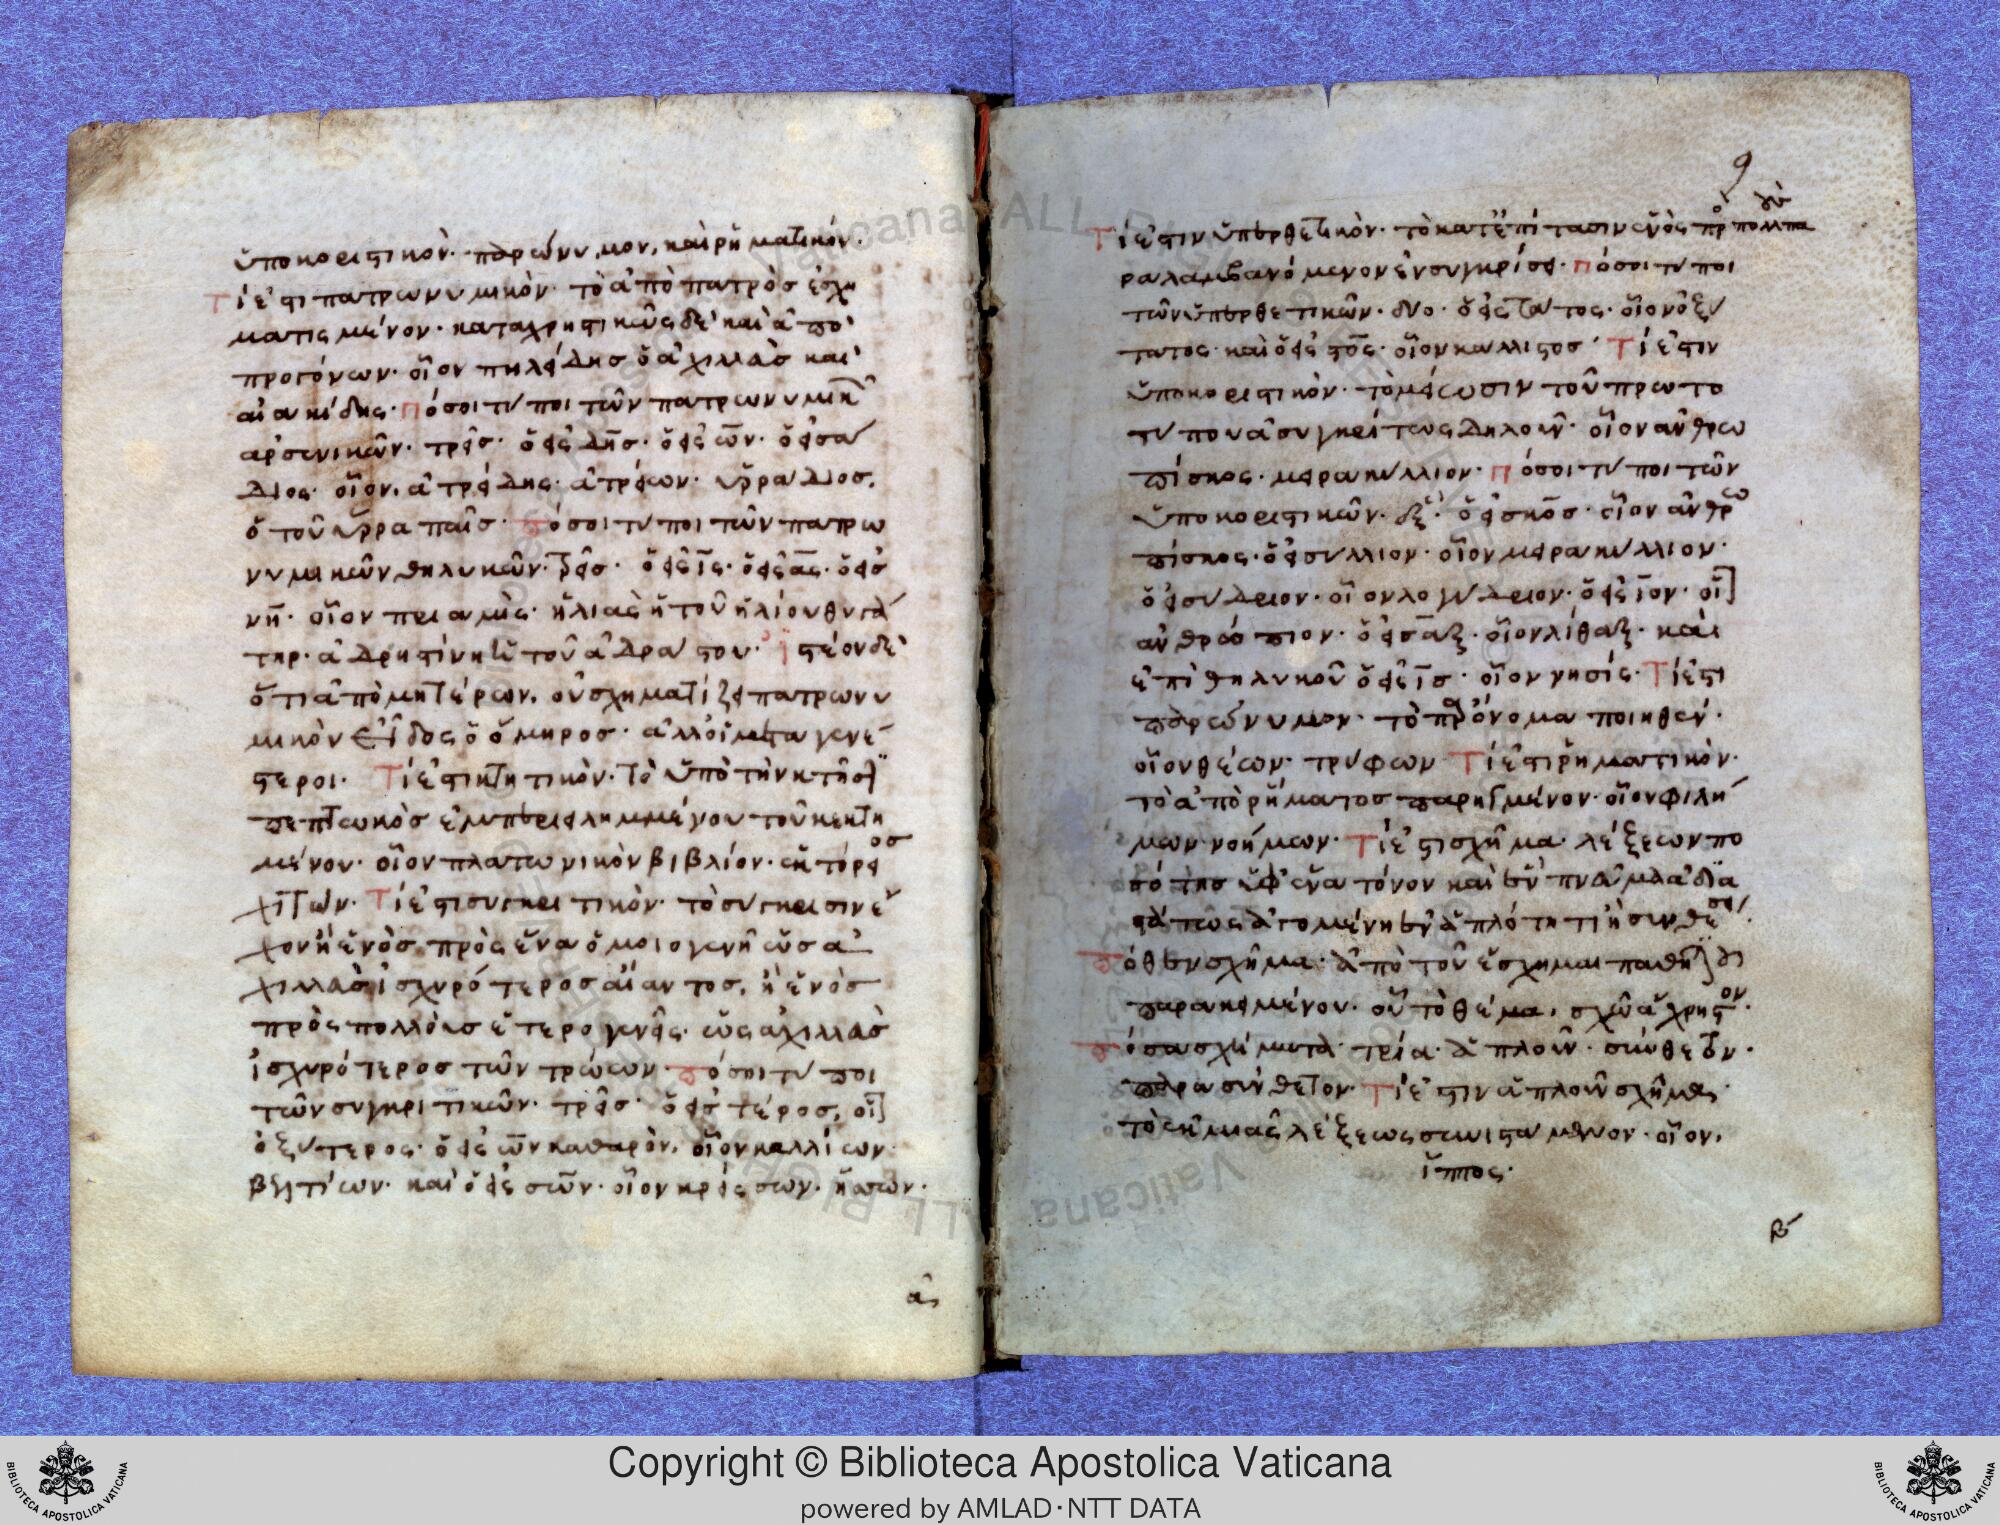 ὑποκοριστικὸν· παρώνυμον, καὶ ῥηματικόν·
Τί ἐστι πατρωνυμικὸν· τὸ ἀπὸ πατρὸσ ἐσχη
ματισμένον· καταχρηστικῶς δὲ καὶ ἀπὸ
προγόνων· οἷον πηλείδησ ὁ ἀχιλλεὺσ καὶ
αἰακίδης· πόσοι τύποι τῶν πατρωνυμικῶν
ἀρσενικῶν· τρεῖσ· ὁ εἰς δησ· ὁ εἰς ων· ὁ εἰσ α
διος· οἷον, ἀτρείδης· ἀτρείων· ὑρράδιοσ,
ὁ τοῦ ὕρρα παῖσ· πόσοι τύποι τῶν πατρω
νυμικῶν θηλυκῶν· τρεῖσ· ὁ εἰς ις· ὁ εἰς ας· ὁ εἰσ
νη· οἷον πριαμὶς· ἡλιὰς ἡ τοῦ ἡλίου θυγά
τηρ· ἀδρηστίνη ἡ τοῦ ἀδράστου· ἰστέον δὲ
ὅτι ἀπὸ μητέρων, οὐ σχηματίζει πατρωνυ
μικὸν εἶδος ὁ ὅμηροσ· ἀλλ' οἱ μετα γενέ
στεροι· Τί ἐστι κτητικὸν· τὸ ὑπὸ τὴν κτῆσιν
πεπτωκὸσ ἐμπεριειλημμένου τοῦ κεκτη
μένου· οἷον πλατωνικὸν βιβλίον· ἑκτόρειοσ
χιτών· Τί ἐστι συγκριτικὸν· τὸ σύγκρισιν ἔ
χον ἢ ἑνὸσ πρὸς ἕνα ὁμοιογενῆ ὡσ ἀ
χιλλεὺσ ἰσχυρότεροσ αἴαντος, ἢ ἑνὸσ
πρὸς πολλοὺσ ἑτερογενεῖς· ὡς ἀχιλλεὺσ
ἰσχυρότεροσ τῶν τρώων· πόσοι τύποι
τῶν συγκριτικῶν· τρεῖσ· ὁ εἰσ τεροσ, οἷον
ὀξύτερος· ὁ εἰς ων καθαρὸν, οἷον καλλίων
βελτίων· καὶ ὁ εἰς σων· οἷον κρείσσων· ἥσσων·
α
9
Τί ἐστιν ὑπερθετικὸν· τὸ κατ' ἐπίτασιν ἑνὸς πρὸς πολλοὺς πα
ραλαμβανόμενον ἐν συγκρίσει· πόσοι τύποι
τῶν ὑπερθετικῶν· δύο· ὁ εἰς τατος· οἷον ὀξύ
τατος· καὶ ὁ εἰς στος· οἷον κάλλιστοσ· Τί ἐστιν
ὑποκοριστικὸν· τὸ μείωσιν τοῦ πρωτο
τύπου ἀσυγκρίτως δηλοῦν· οἷον ἀνθρω
πίσκος· μειρακύλλιον· πόσοι τύποι τῶν
ὑποκοριστικῶν· ἕξ· ὁ εἰσ κοσ· οἷον ἀνθρω
πίσκος· ὁ εἰσ υλλιον· οἷον μειρακύλλιον·
ὁ εἰσ υδριον· οἷον λογύδριον· ὁ εἰς ιον· οἷον
ἀνθρώπιον· ὁ εἰσ αξ· οἷον λίθαξ· καὶ
ἐπὶ θηλυκοῦ ὁ εἰς ισ· οἷον νησίς· Τί ἐστι
παρώνυμον· τὸ παρ' ὄνομα ποιηθέν·
οἷον θέων· τρύφων Τί ἐστι ῥηματικὸν·
τὸ ἀπὸ ῥήματοσ παρηγμένον· οἷον φιλή
μων νοήμων· Τί ἐστι σχῆμα· λέξεων πο
σότησ ὑφ' ἕνα τόνον καὶ ἓν πνεῦμα ἀδια
στάτως ἀγομένη ἐν ἁπλότητι ἢ συνθέσει·
πόθεν σχῆμα· ἀπὸ τοῦ ἔσχημαι παθητικοῦ
παρακειμένου· οὗ τὸ θέμα, σχῶ ἄχρηστον·
πόσα σχήματα τρία· ἁπλοῦν· σύνθετον·
παρασύνθετον· Τί ἐστιν ἁπλοῦν σχῆμα·
τὸ ἐκ μιᾶς λέξεως συνιστάμενον· οἷον,
ἵππος·
β
Copyright © Biblioteca Apostolica Vaticana
powered by AMLAD·NTT DATA
BIBLIOTECA APOSTOLICA VATICANA
BIBLIOTECA APOSTOLICA VATICANA